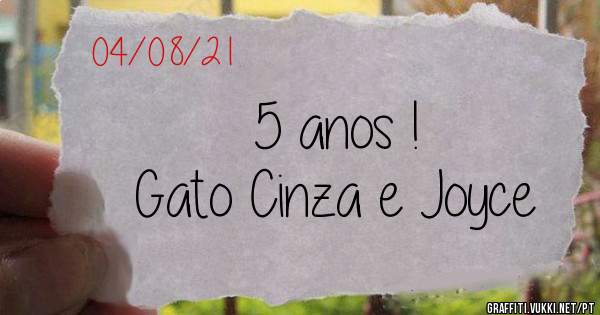 04/08/21
5 anos !
Gato Cinza e Joyce
GRAFFITI.VUKKI.NET/PT